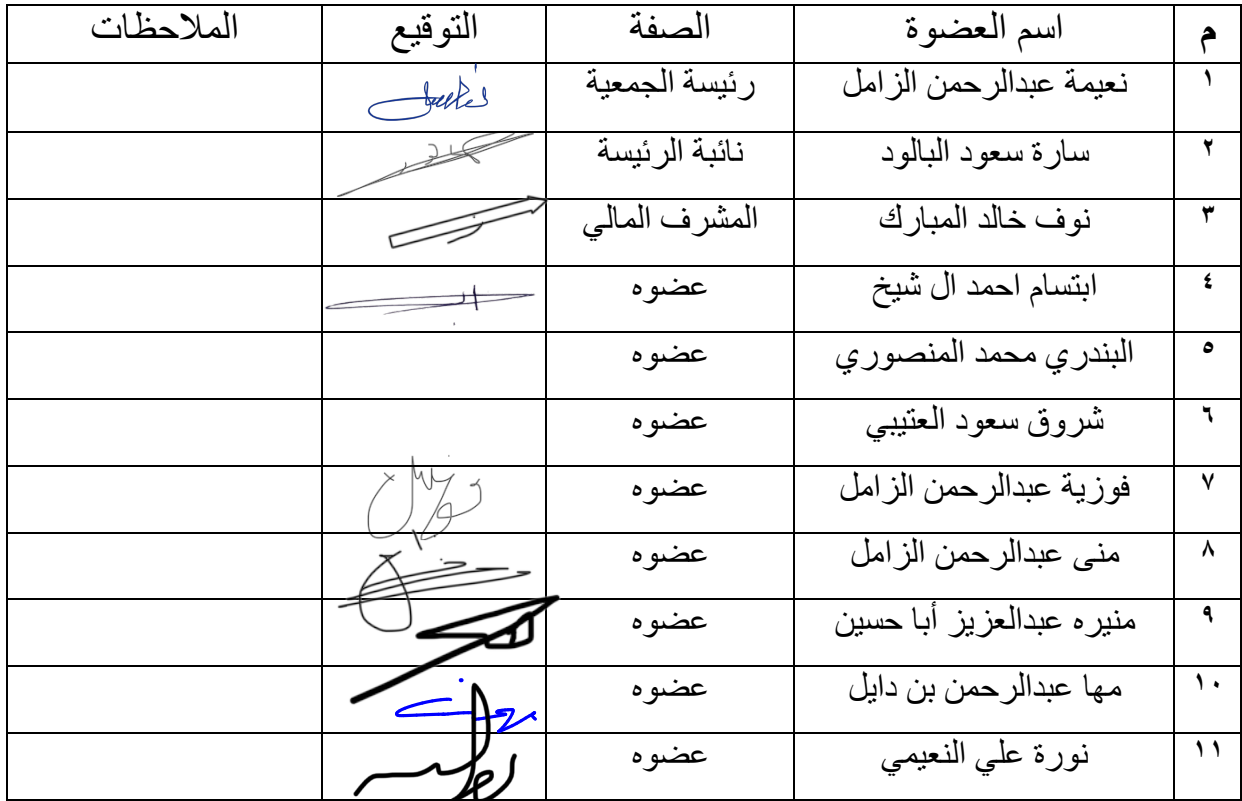 م اسم العضوة الصفة التوقيع الملاحظات
١ نعيمة عبدالرحمن الزامل رئيسة الجمعية
٢ سارة سعود البالود نائبة الرئيسة
٣ نوف خالد المبارك المشرف المالي
٤ ابتسام احمد ال شيخ عضوه
٥ البندري محمد المنصوري عضوه
٦ شروق سعود العتيبي عضوه
٧ فوزية عبدالرحمن الزامل عضوه
٨ منى عبدالرحمن الزامل عضوه
٩ منيره عبدالعزيز أبا حسين عضوه
١٠ مها عبدالرحمن بن دايل عضوه
١١ نورة علي النعيمي عضوه